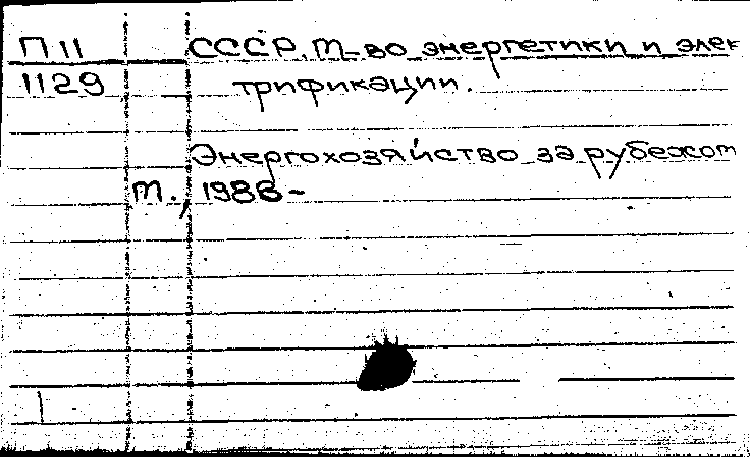 П 11 СССР. М-во энергетики и элек
1129 трификации.
Энергохозяйство за рубежом
М. 1986 -